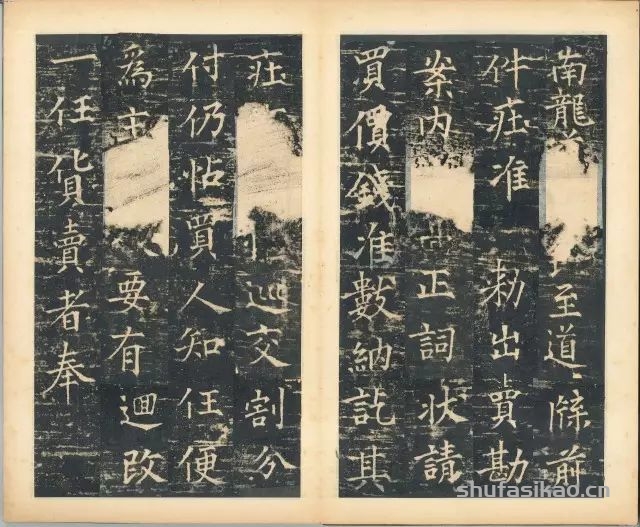 南龍至道牒前
件莊准勅出賣勘
案内正詞狀請
買價錢准數納訖其
莊巡交割分
付仍帖買人知任便
爲主要有迴改
一任貨賣者奉
shufasikao.cn